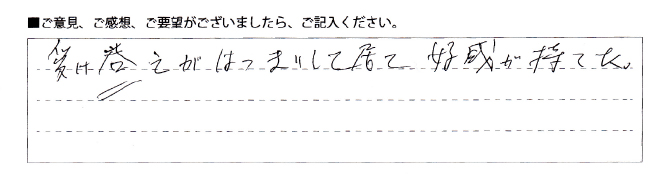 ■ご意見、ご感想、ご要望がございましたら、ご記入ください。
受け答えがはっきりして居て、好感が持てた。